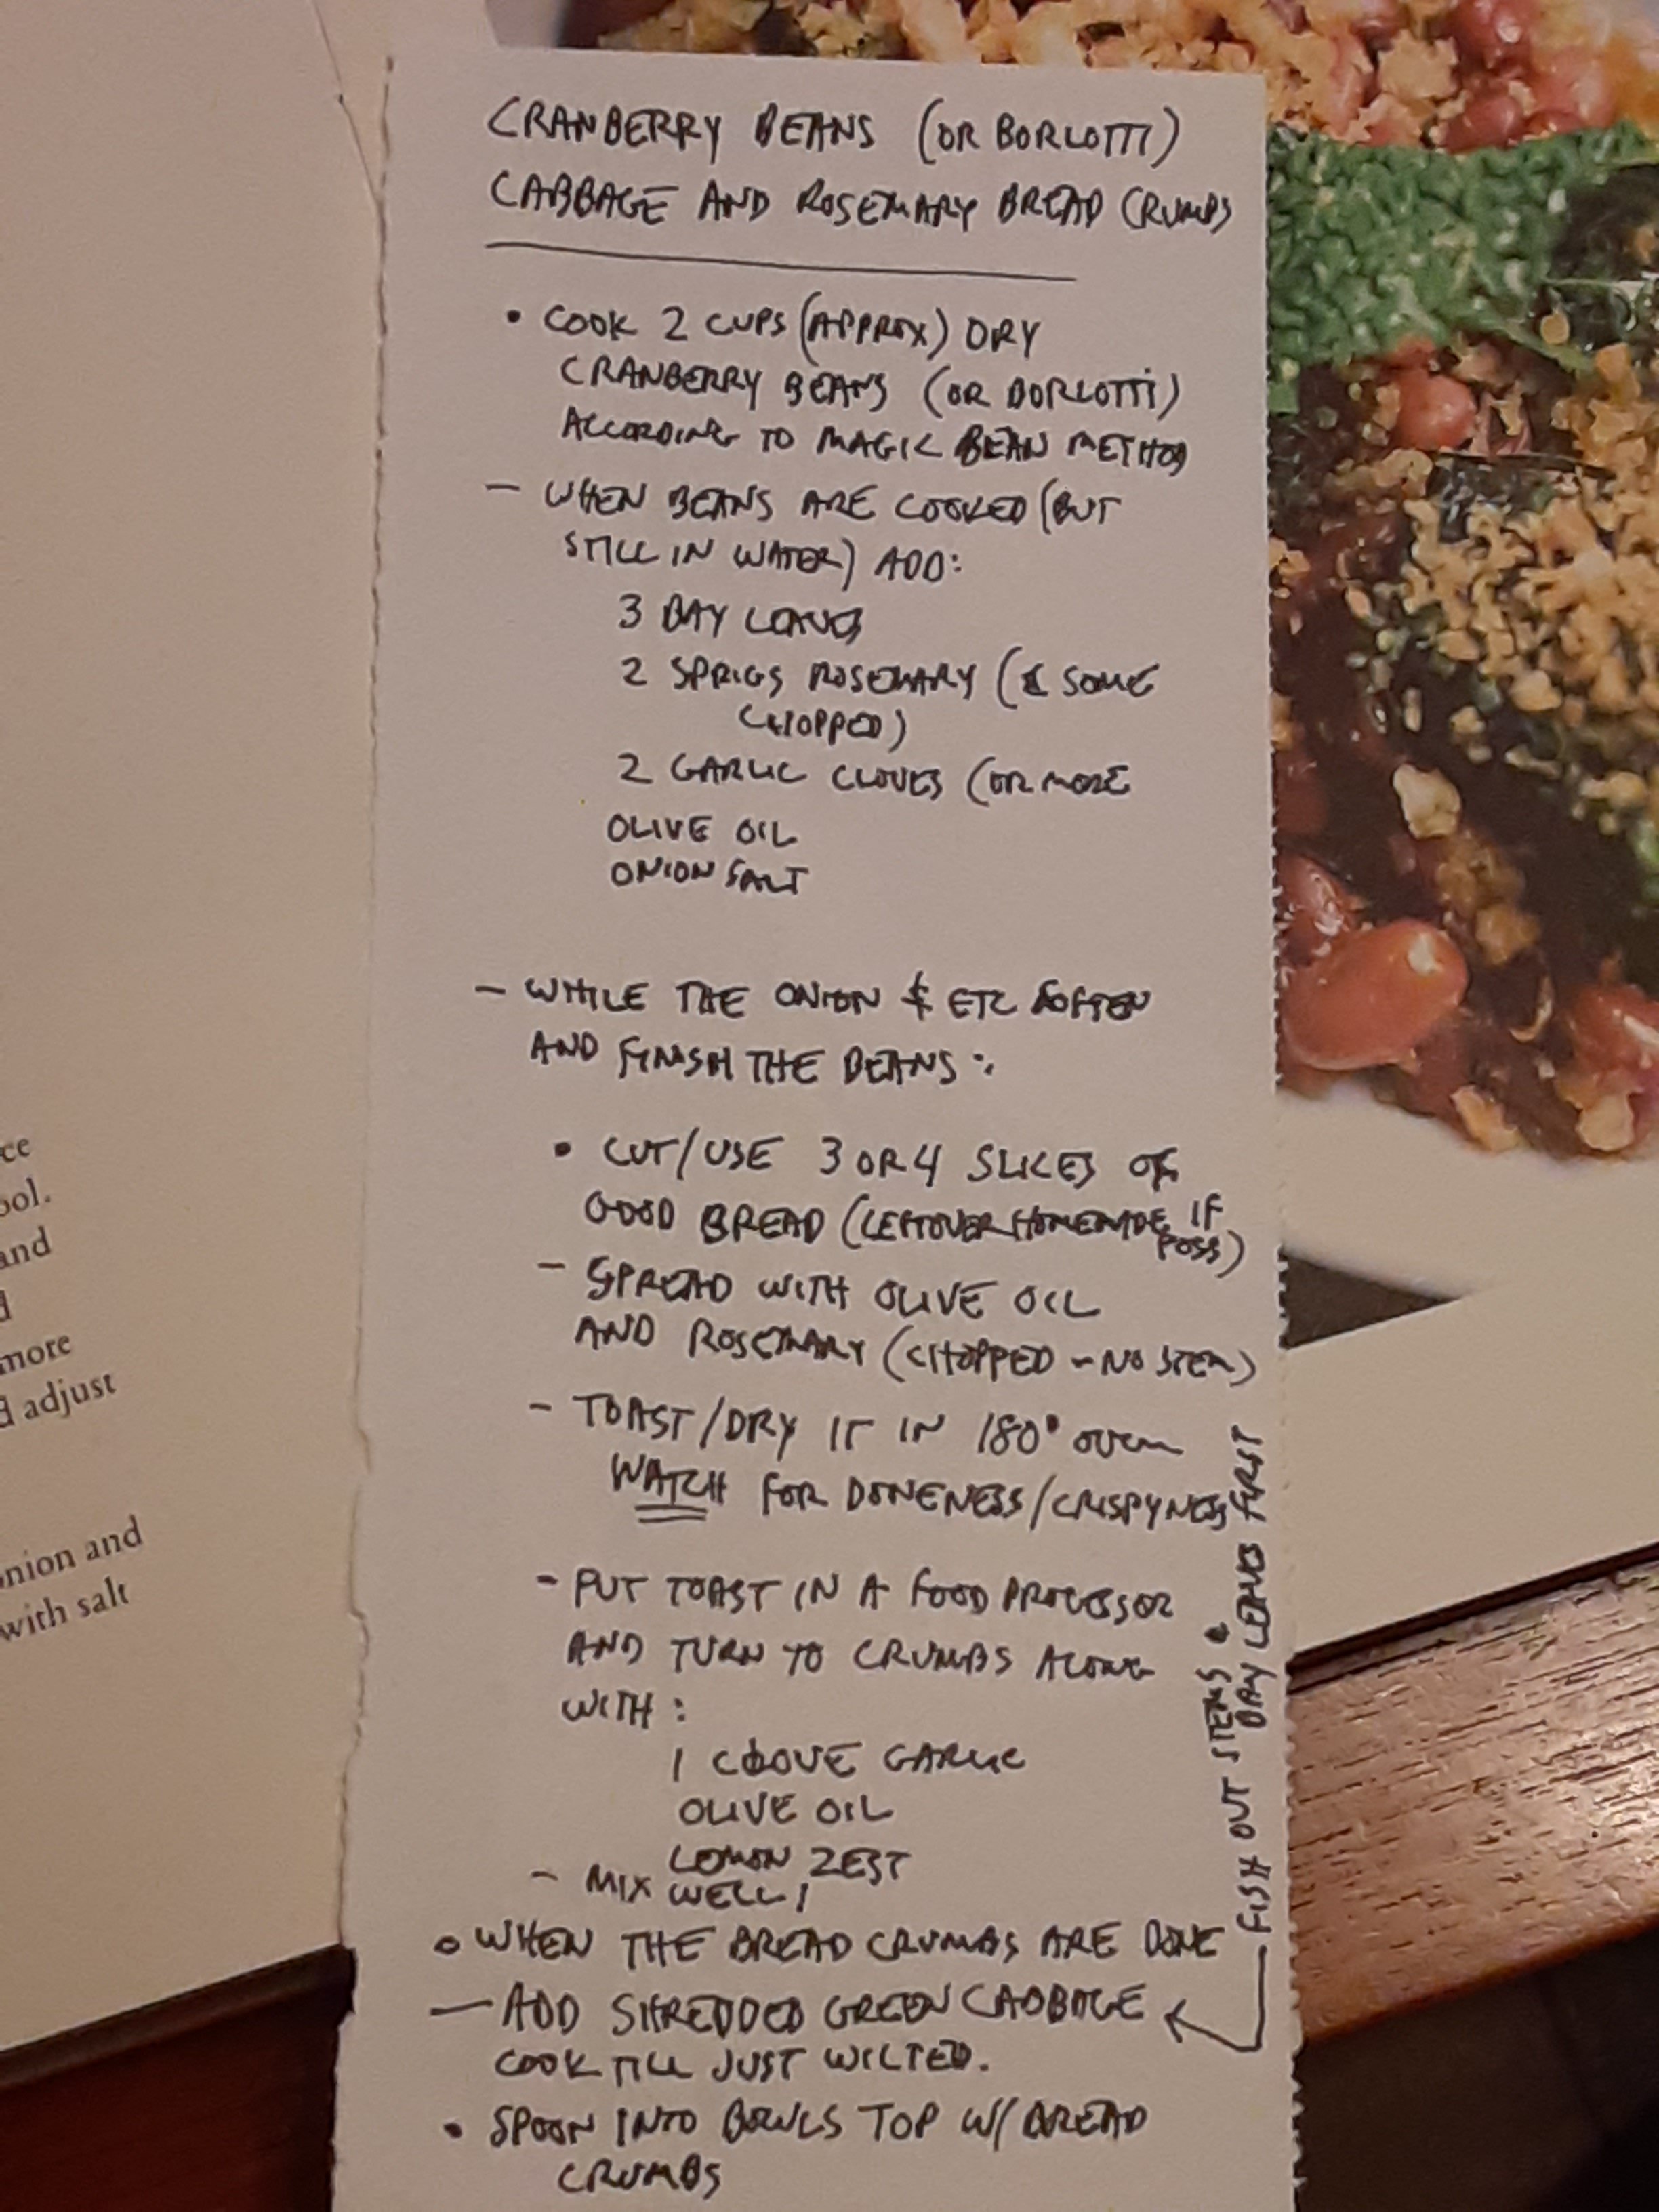 CRANBERRY BEANS (OR BORLOTTI)
CABBAGE AND ROSEMARY BREAD CRUMBS
• COOK 2 CUPS (APPROX) DRY
CRANBERRY BEANS (OR BORLOTTI)
ACCORDING TO MAGIC BEAN METHOD
— WHEN BEANS ARE COOKED (BUT
STILL IN WATER) ADD:
3 BAY LEAVES
2 SPRIGS ROSEMARY (& SOME
CHOPPED)
2 GARLIC CLOVES (OR MORE
OLIVE OIL
ONION SALT
— WHILE THE ONION & ETC SOFTEN
AND FINISH THE BEANS:
• CUT/USE 3 OR 4 SLICES OF
GOOD BREAD (LEFTOVER HOMEMADE IF
POSS)
— SPREAD WITH OLIVE OIL
AND ROSEMARY (CHOPPED - NO STEM)
— TOAST/DRY IT IN 180° OVEN
WATCH FOR DONENESS/CRISPYNESS
- PUT TOAST IN A FOOD PROCESSOR
AND TURN TO CRUMBS ALONG
WITH:
1 CLOVE GARLIC
OLIVE OIL
LEMON ZEST
- MIX WELL!
• WHEN THE BREAD CRUMBS ARE DONE
— ADD SHREDDED GREEN CABBAGE
COOK TILL JUST WILTED.
• SPOON INTO BOWLS TOP W/ BREAD
CRUMBS
FISH OUT STEMS &
BAY LEAVES FIRST
ce
ool.
and
d
more
d adjust
nion and
with salt